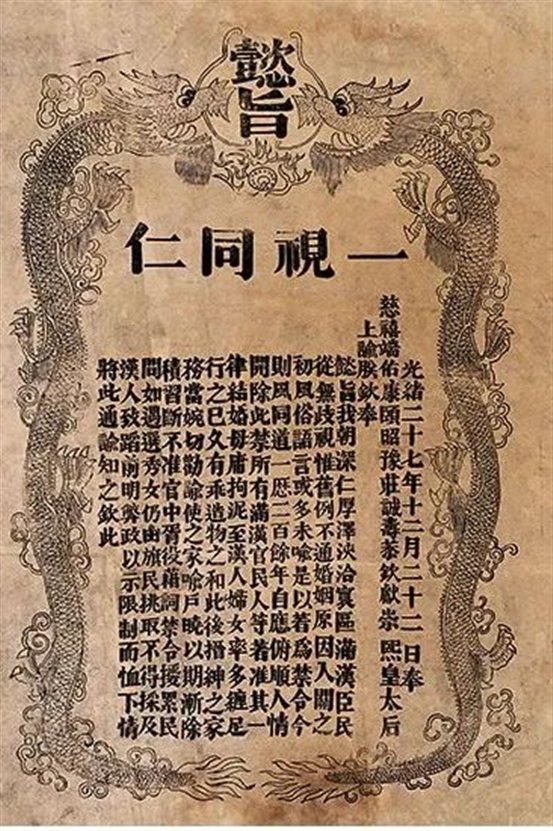 懿旨
一視同仁
光緒二十七年十二月二十二日奉
慈禧端佑康頤昭豫莊誠壽恭欽獻崇熙皇太后
上諭朕欽奉
懿旨我朝深仁厚澤浹洽寰區滿漢臣民
從無歧視惟舊例不通婚姻原因入關之
初風俗語言或多未喻是以着爲禁令今
則風同道一歷二百餘年自應俯順人情
開除此禁所有滿漢官民人等著准其一
律結婚毋庸拘泥至漢人婦女率多纏足
行之已久有乖造物之和此後搢紳之家
務當婉切勸諭使之家喻戶曉以期漸除
積習斷不准官中胥役藉詞禁令擾累民
間如遇選秀女仍由旗民挑取不得採及
漢人致蹈前明弊政以示限制而恤下情
將此通諭知之欽此